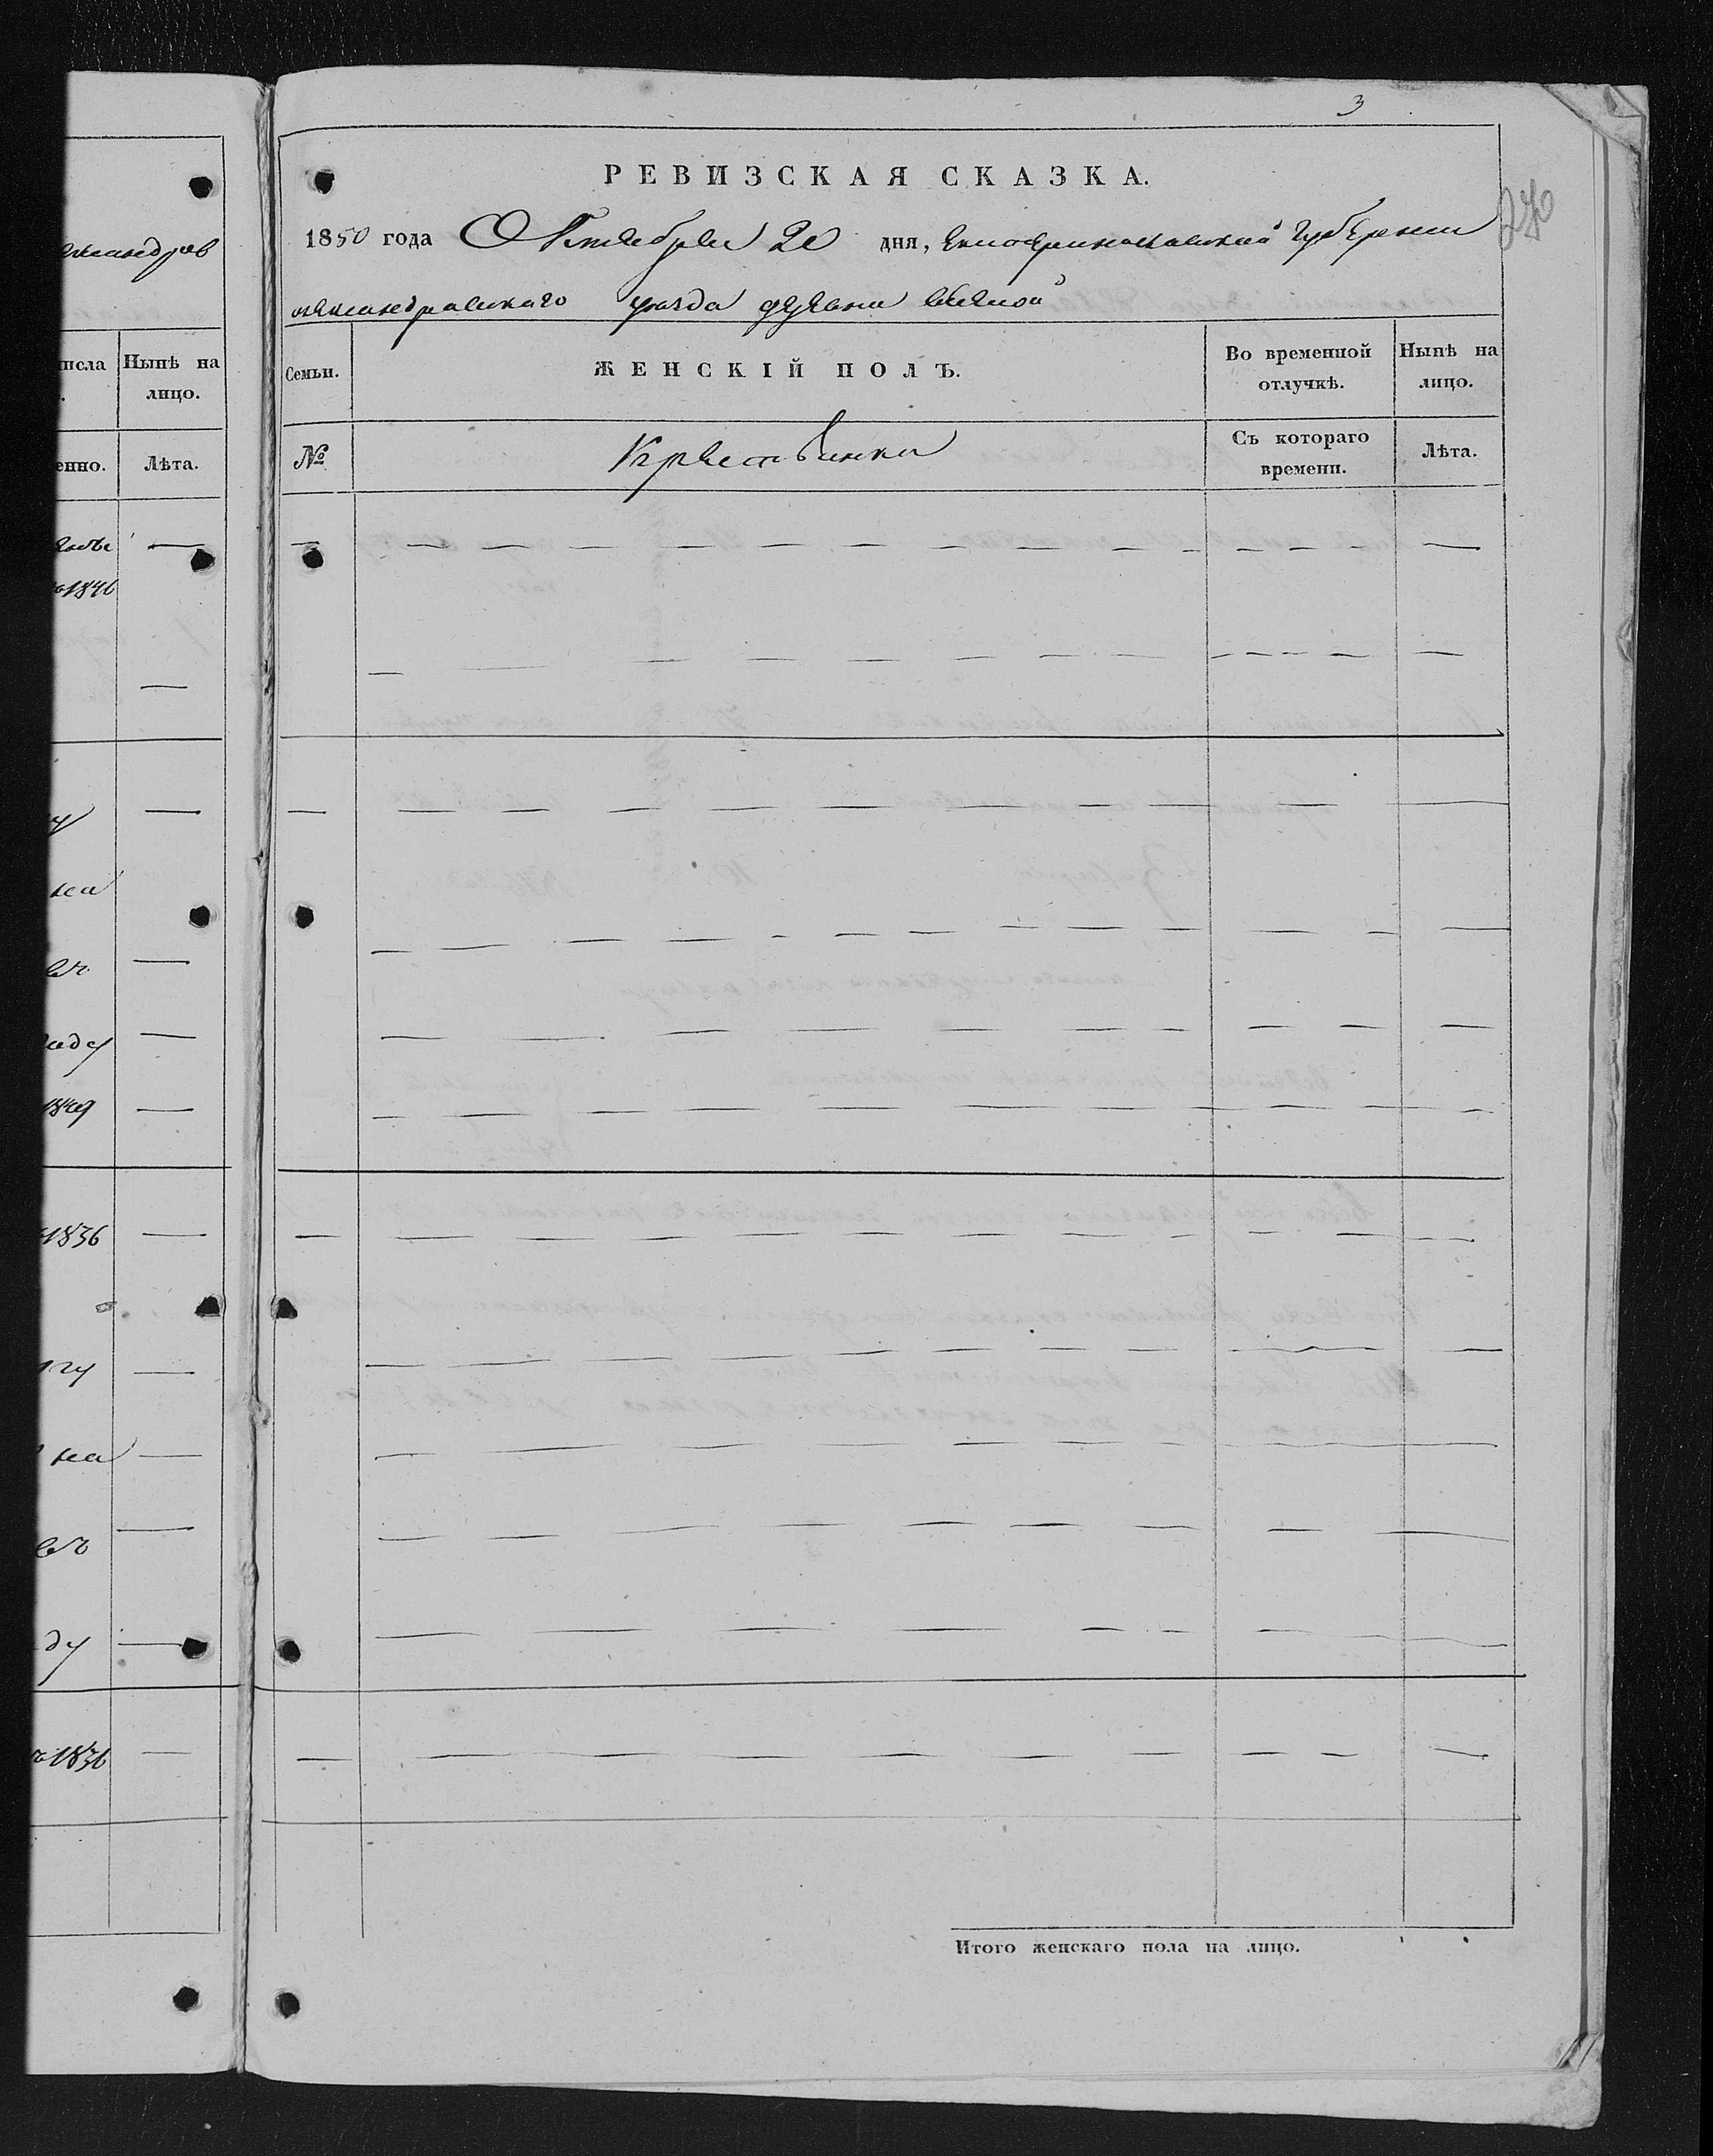 3
РЕВИЗСКАЯ СКАЗКА.
1850 года Октября 20 дня, Екатеринославской Губернии
Александровскаго уезда деревни
Семьи.
ЖЕНСКІЙ ПОЛЪ.
Во временной отлучкѣ.
Нынѣ на лицо.
№
Крестьянки
Съ котораго времени.
Лѣта.
Итого женскаго пола на лицо.
Нынѣ на
лицо.
енно.
Лѣта.
1846
ну
на
году
1849
1836
на
ду
1836